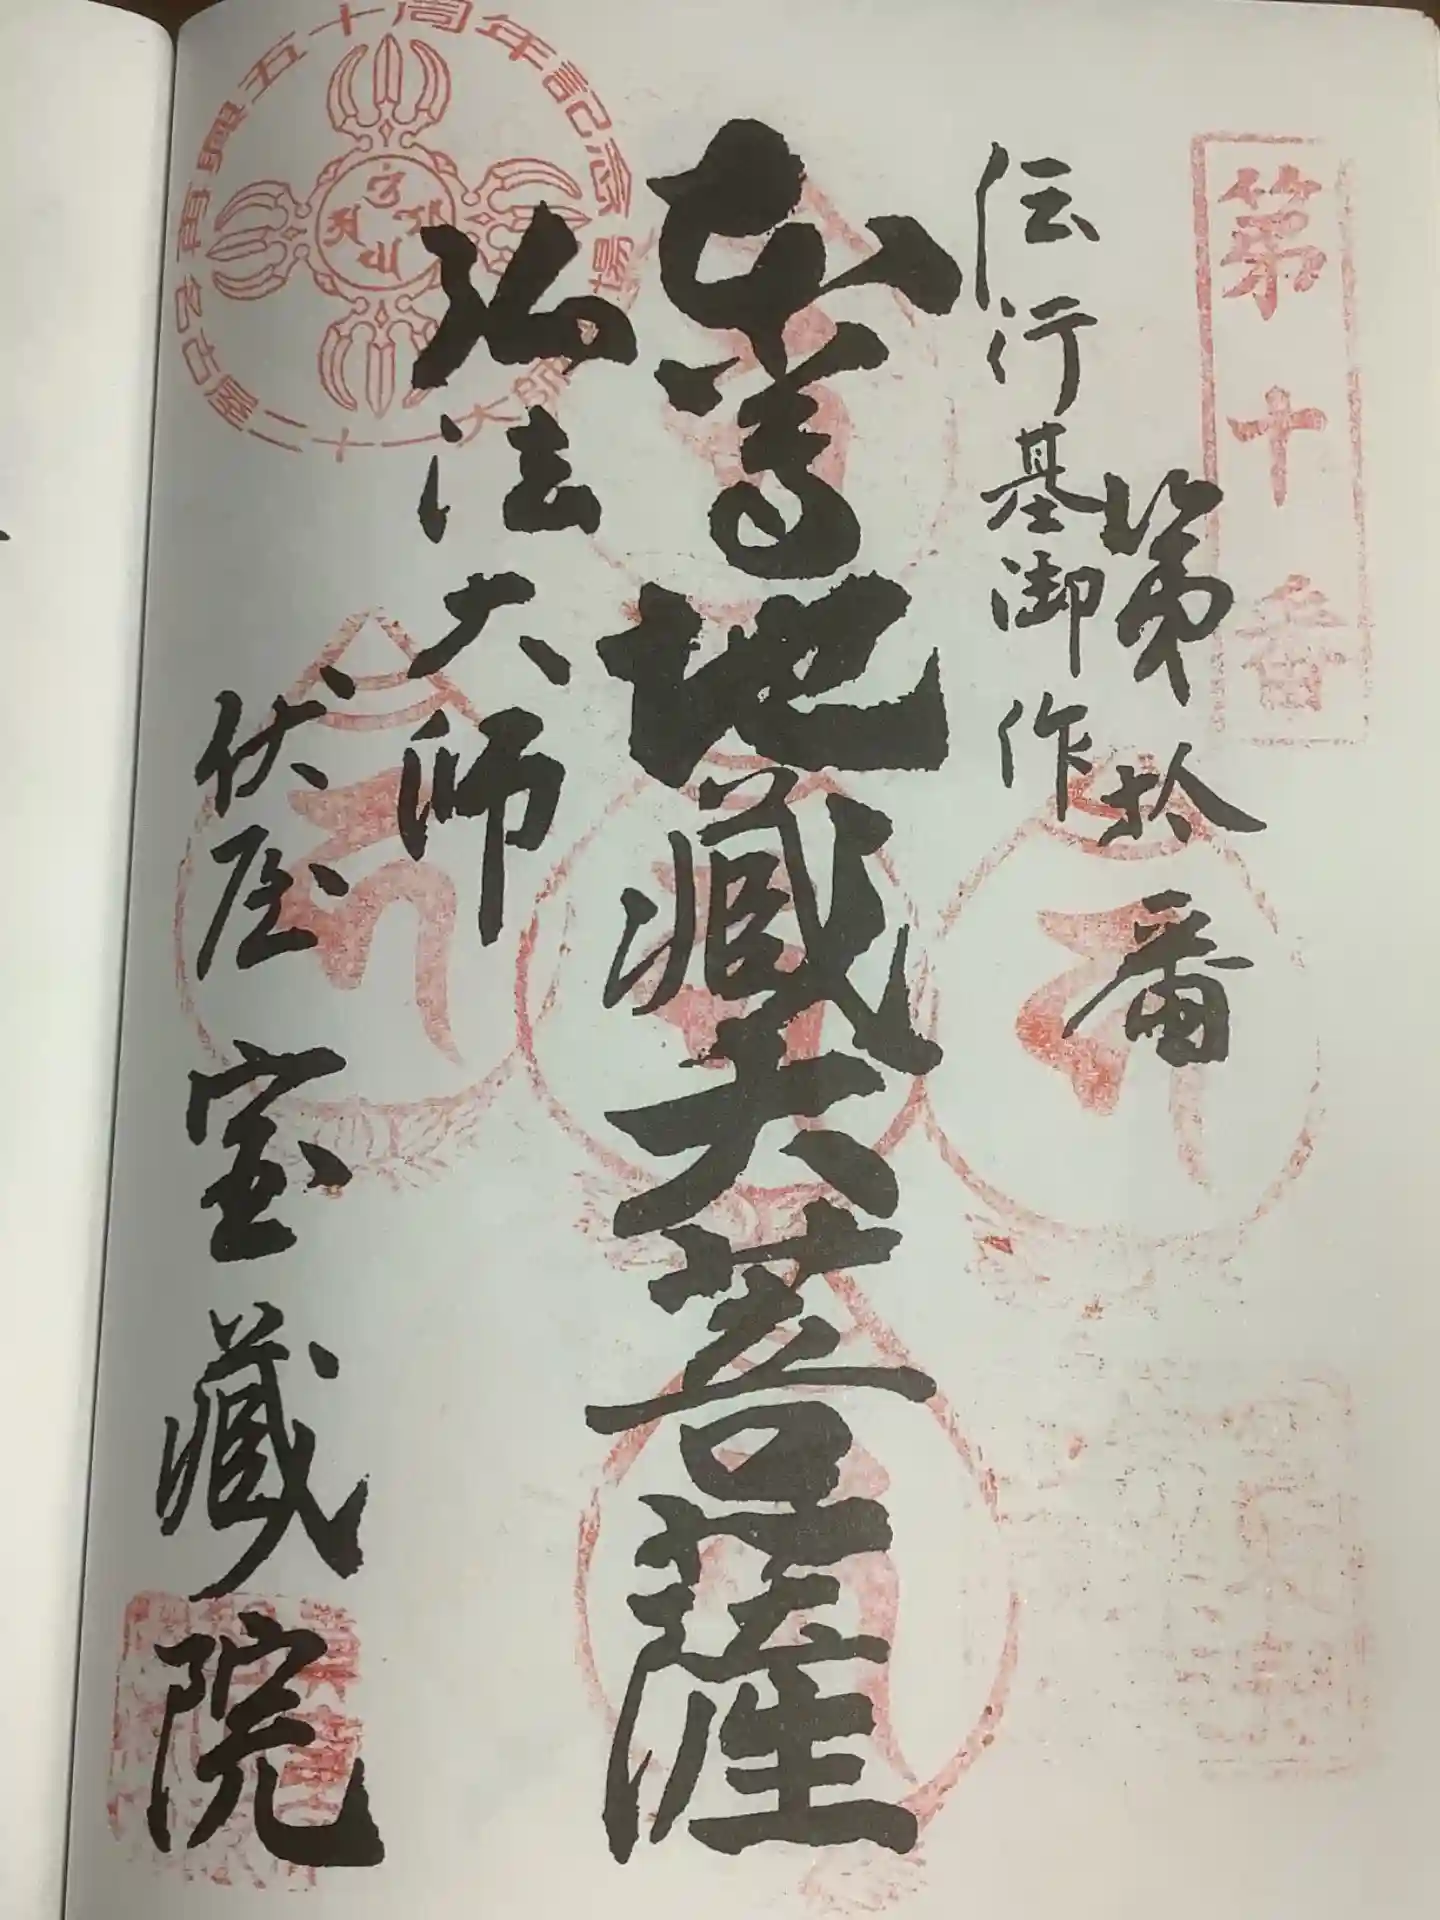 第十番
第拾番
伝行基御作
本尊地蔵大菩薩
弘法大師
伏屋宝蔵院
名古屋二十一大師霊場
五十周年記念